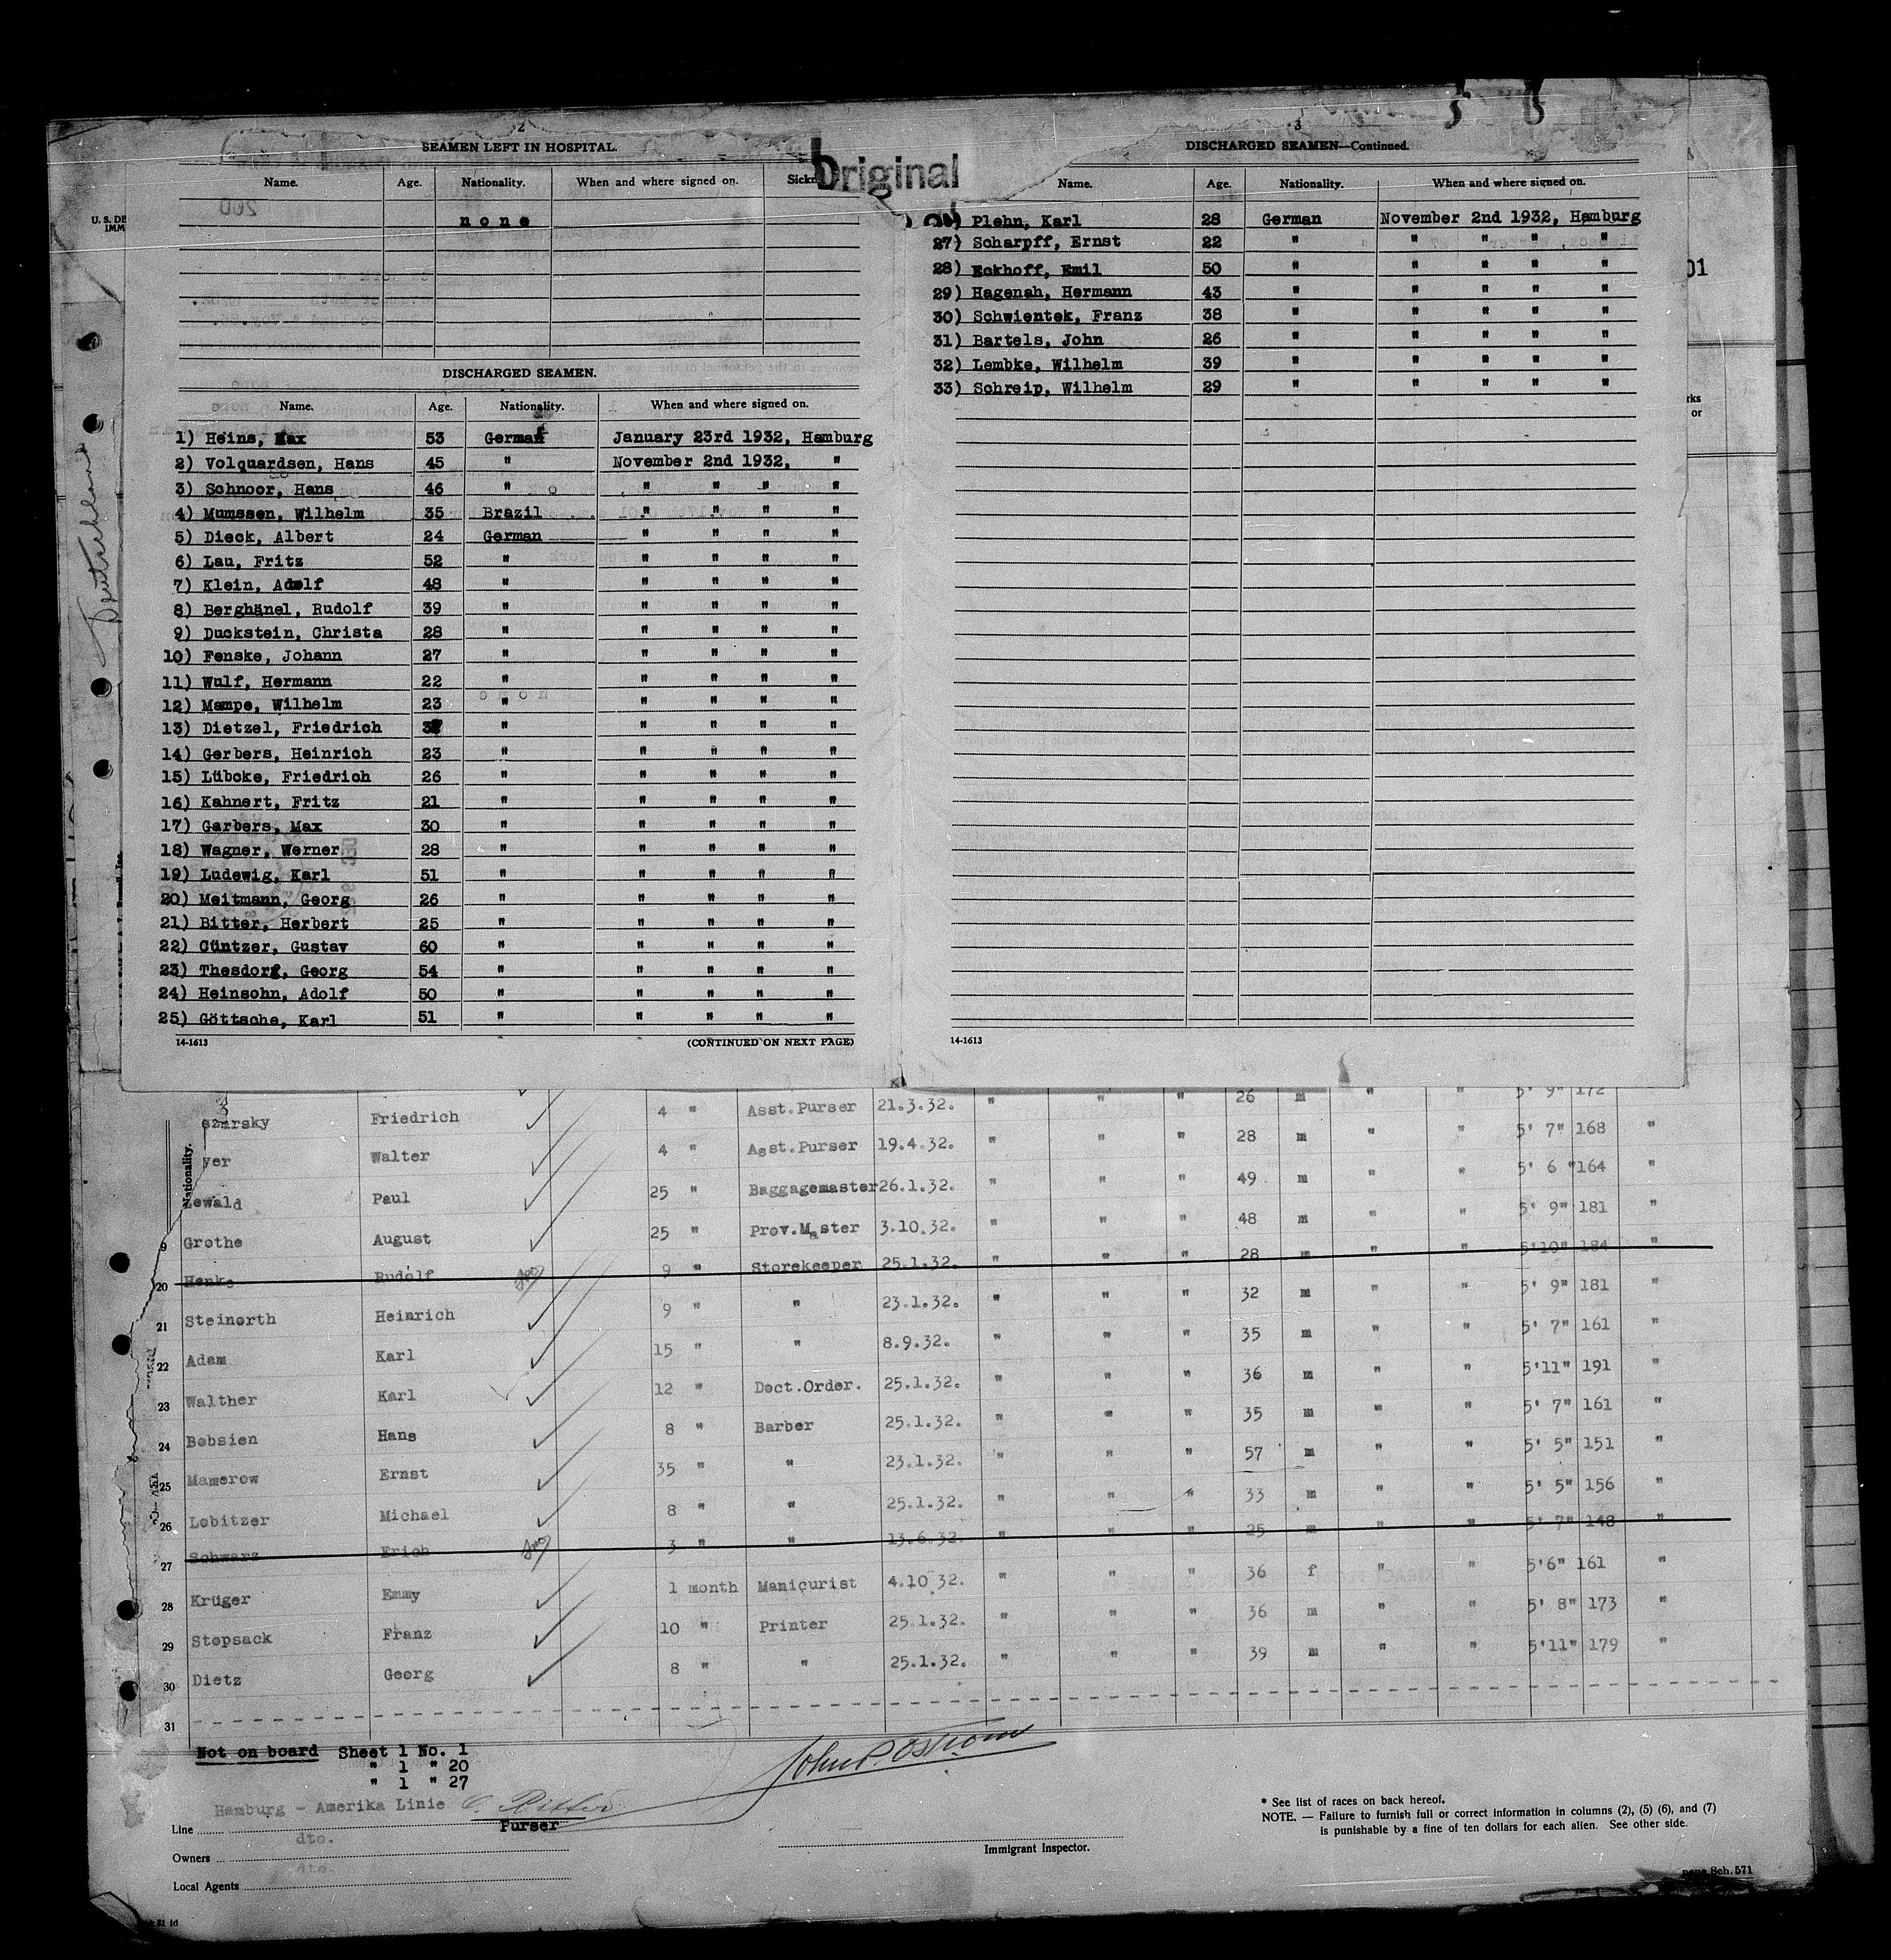 2
SEAMEN LEFT IN HOSPITAL.
Name. Age. Nationality. When and where signed on.
none
Original
DISCHARGED SEAMEN.
Name. Age. Nationality. When and where signed on.
1) Heins, Max 53 German January 23rd 1932, Hamburg
2) Volquardsen, Hans 45 " November 2nd 1932, "
3) Schnoor, Hans 46 " " " " "
4) Mumssen, Wilhelm 35 Brazil " " " "
5) Dieck, Albert 24 German " " " "
6) Lau, Fritz 52 " " " " "
7) Klein, Adolf 48 " " " " "
8) Berghänel, Rudolf 39 " " " " "
9) Duckstein, Christa 28 " " " " "
10) Fenske, Johann 27 " " " " "
11) Wulf, Hermann 22 " " " " "
12) Mampe, Wilhelm 23 " " " " "
13) Dietzel, Friedrich " " " " "
14) Gerbers, Heinrich 23 " " " " "
15) Lübcke, Friedrich 26 " " " " "
16) Kahnert, Fritz 21 " " " " "
17) Garbers, Max 30 " " " " "
18) Wagner, Werner 28 " " " " "
19) Ludewig, Karl 51 " " " " "
20) Meitmann, Georg 26 " " " " "
21) Bitter, Herbert 25 " " " " "
22) Güntzer, Gustav 60 " " " " "
23) Thesdorf, Georg 54 " " " " "
24) Heinsohn, Adolf 50 " " " " "
25) Göttsche, Karl 51 " " " " "
14-1613 (CONTINUED ON NEXT PAGE)
3
DISCHARGED SEAMEN—Continued.
Name. Age. Nationality. When and where signed on.
26) Plehn, Karl 28 German November 2nd 1932, Hamburg
27) Scharpff, Ernst 22 " " " " "
28) Eckhoff, Emil 50 " " " " "
29) Hagenah, Hermann 43 " " " " "
30) Schwientek, Franz 38 " " " " "
31) Bartels, John 26 " " " " "
32) Lembke, Wilhelm 39 " " " " "
33) Schreip, Wilhelm 29 " " " " "
14-1613
U. S. DE
IMM
01
rks
or
Deutschland
Nationality.
szarsky Friedrich 4 " Asst.Purser 21.3.32. " " " 26 m " " 5' 9" 172
yer Walter 4 " Asst.Purser 19.4.32. " " " 28 m " " 5' 7" 168 "
Lewald Paul 25 " Baggagemaster 26.1.32. " " " 49 m " " 5' 6" 164 "
9 Grothe August 25 " Prov.Master 3.10.32. " " " 48 m " " 5' 9" 181 "
20 Henke Rudolf 9 " Storekeeper 25.1.32. " " " 28 m " " 5'10" 184 "
21 Steinorth Heinrich 9 " " 23.1.32. " " " 32 m " " 5' 9" 181 "
22 Adam Karl 15 " " 8.9.32. " " " 35 m " " 5' 7" 161 "
23 Walther Karl 12 " Doct.Order. 25.1.32. " " " 36 m " " 5'11" 191 "
24 Bobsien Hans 8 " Barber 25.1.32. " " " 35 m " " 5' 7" 161 "
25 Mamerow Ernst 35 " " 23.1.32. " " " 57 m " " 5' 5" 151 "
26 Lobitzer Michael 8 " " 25.1.32. " " " 33 m " " 5' 5" 156 "
27 Schwarz Erich 3 " " 13.6.32. " " " 25 m " " 5' 7" 148 "
28 Krüger Emmy 1 month Manicurist 4.10.32. " " " 36 f " " 5'6" 161 "
29 Stopsack Franz 10 " Printer 25.1.32. " " " 36 m " " 5' 8" 173 "
30 Dietz Georg 8 " " 25.1.32. " " " 39 m " " 5'11" 179 "
31
Not on board Sheet 1 No. 1
" 1 " 20
" 1 " 27
John P. Ostrom
Line Hamburg - Amerika Linie C. Ritter
Purser
Owners dto.
Local Agents dto.
Immigrant Inspector.
* See list of races on back hereof.
NOTE. — Failure to furnish full or correct information in columns (2), (5) (6), and (7)
is punishable by a fine of ten dollars for each alien. See other side.
Sch. 571